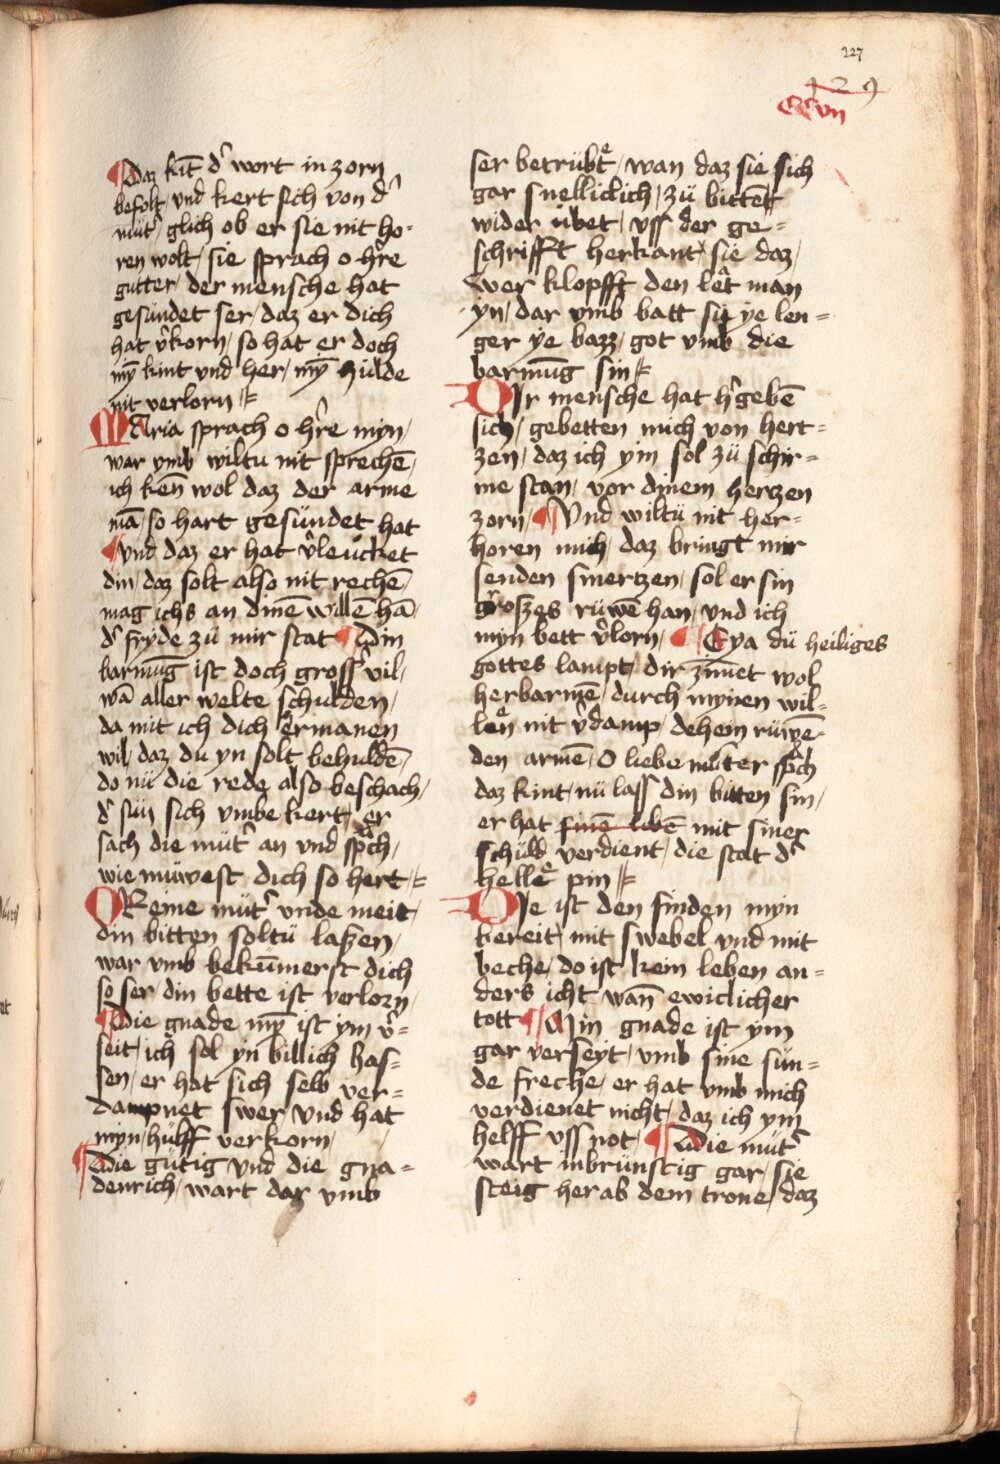 227
129
CCvii
¶ Daz kīt dʾ wort in zorn
befolt / vnd kert sich von dʾ
mütʾ / glich ob er sie nit ho-
ren wolt / sie sprach o hʾre
gutter / der mensche hat
gesündet ser / daz er dich
hat vʾkorn / so hat er doch
my̅ kint vnd her / my̅ hulde
nit verlorn //
MAria sprach o hʾre myn /
war vmb wiltu nit spreche̅ /
ich ken̅ wol daz der arme
ma̅ / so hart gesündet hat
¶ vnd daz er hat vʾleucket
din / daz solt also nit reche̅ /
mag ichs an dine̅ wille̅ ha̅ /
dʾ fryde zü mir stat ¶ Din
barmu̅g ist doch gross vil /
wa̅ aller welte schulden /
da mit ich dich ermanen
wil / daz du yn solt behulde̅ /
do nü die rede also beschach /
dʾ sün sich vmbe kert / er
sach die mütʾ an vnd spᵃch /
wie müwest dich so hert //
O Reine mütʾ vnde meit /
din bitten soltü laszen /
war vmb bekümerst dich
so ser din bette ist verlorn /
¶ Die gnade my̅ ist ym vʾ-
seit / ich sol yn billich has-
sen / er hat sich selb ver-
dampnet swer / vnd hat
myn / hülff verkorn /
¶ Die gütig vnd die gna-
denrich / wart dar vmb
ser betrübtͤ / wan daz sie sich
gar snelliclich / zü bitte̅t
wider übet / vss der ge-
schrifft herkant / sie daz /
wer klopfft den let man
yn / dar vmb batt sü ye len-
ger ye bazz / got vmb die
barmu̅g sin //
DIr mensche hat hʾgebe̅
sich / gebetten mich von hert-
zen / daz ich ym sol zü schir-
me stan / vor dinem hertzen
zorn / ¶ Vnd wiltü nit her-
horen mich / daz bringt mir
senden smertzen / sol er sin
groszes rüwe̅ han / vnd ich
myn bett vʾlorn / ¶ Eya dü heiliges
gottes lampt / dir zim̅et wol
herbarme̅ / durch mynen wil-
len nit vʾdamp / dehein rüwe̅
den arme̅ / O liebe muter spᵃch
daz kint / nü lass din bitten sin /
er hat sine̅ libe̅ mit siner
schuld verdient / die stat dʾ
helleͤ pin //
DIe ist den sinden myn
bereit / mit swebel vnd mit
beche / do ist kein leben an-
ders icht wan̅ ewiclicher
tott ¶ Min gnade ist ym
gar verseyt / vmb sine sün-
de freche / er hat vmb mich
verdienet nicht / daz ich ym
helff vss not / ¶ Die mütʾ
wart inbrünstig gar / sie
steig herab dem trone / daz